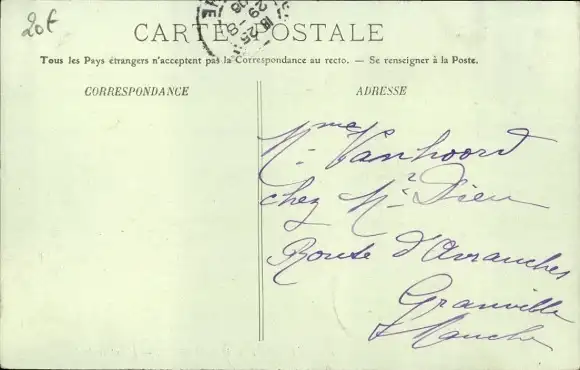 20€
CARTE POSTALE
Tous les Pays étrangers n'acceptent pas la Correspondance au recto. — Se renseigner à la Poste.
CORRESPONDANCE
ADRESSE
Mme Vanhoord
chez Mr Dieu
Route d'Avranches
Granville
Manche
18 25
29 - 8
08